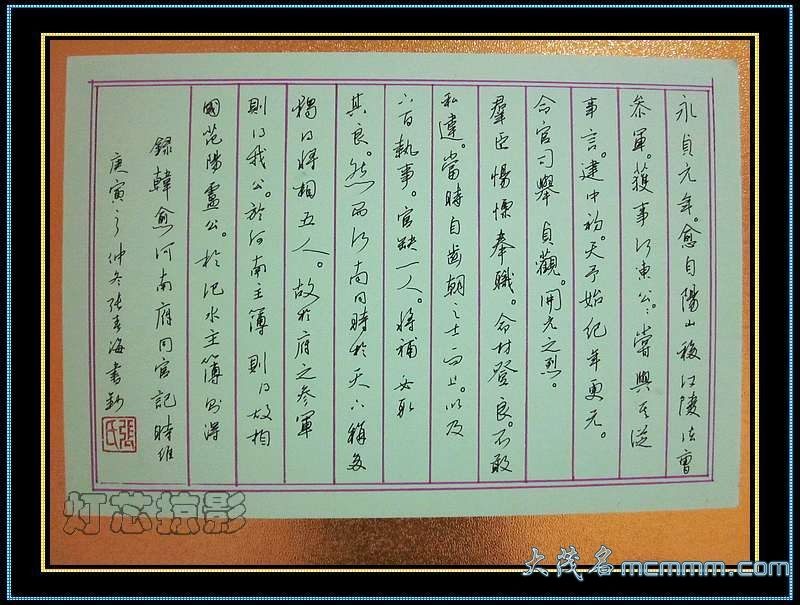 永貞元年。愈自陽山移江陵法曹
參軍。獲事河東公。公嘗與其從
事言。建中初。天子始紀年更元。
命官司舉貞觀。開元之烈。
羣臣惕慄奉職。命材登良。不敢
私違。當時自齒朝之士而上。以及
下百執事。官缺一人。將補必取
其良。然而河南同時於天下稱多
獨得將相五人。故於府之參軍
則得我公。於河南主簿則得故相
國范陽盧公。於汜水主簿則得
錄韓愈河南府同官記 時維
庚寅之仲冬張春海書
張氏
灯芯掠影
大茂名mcmmm.com